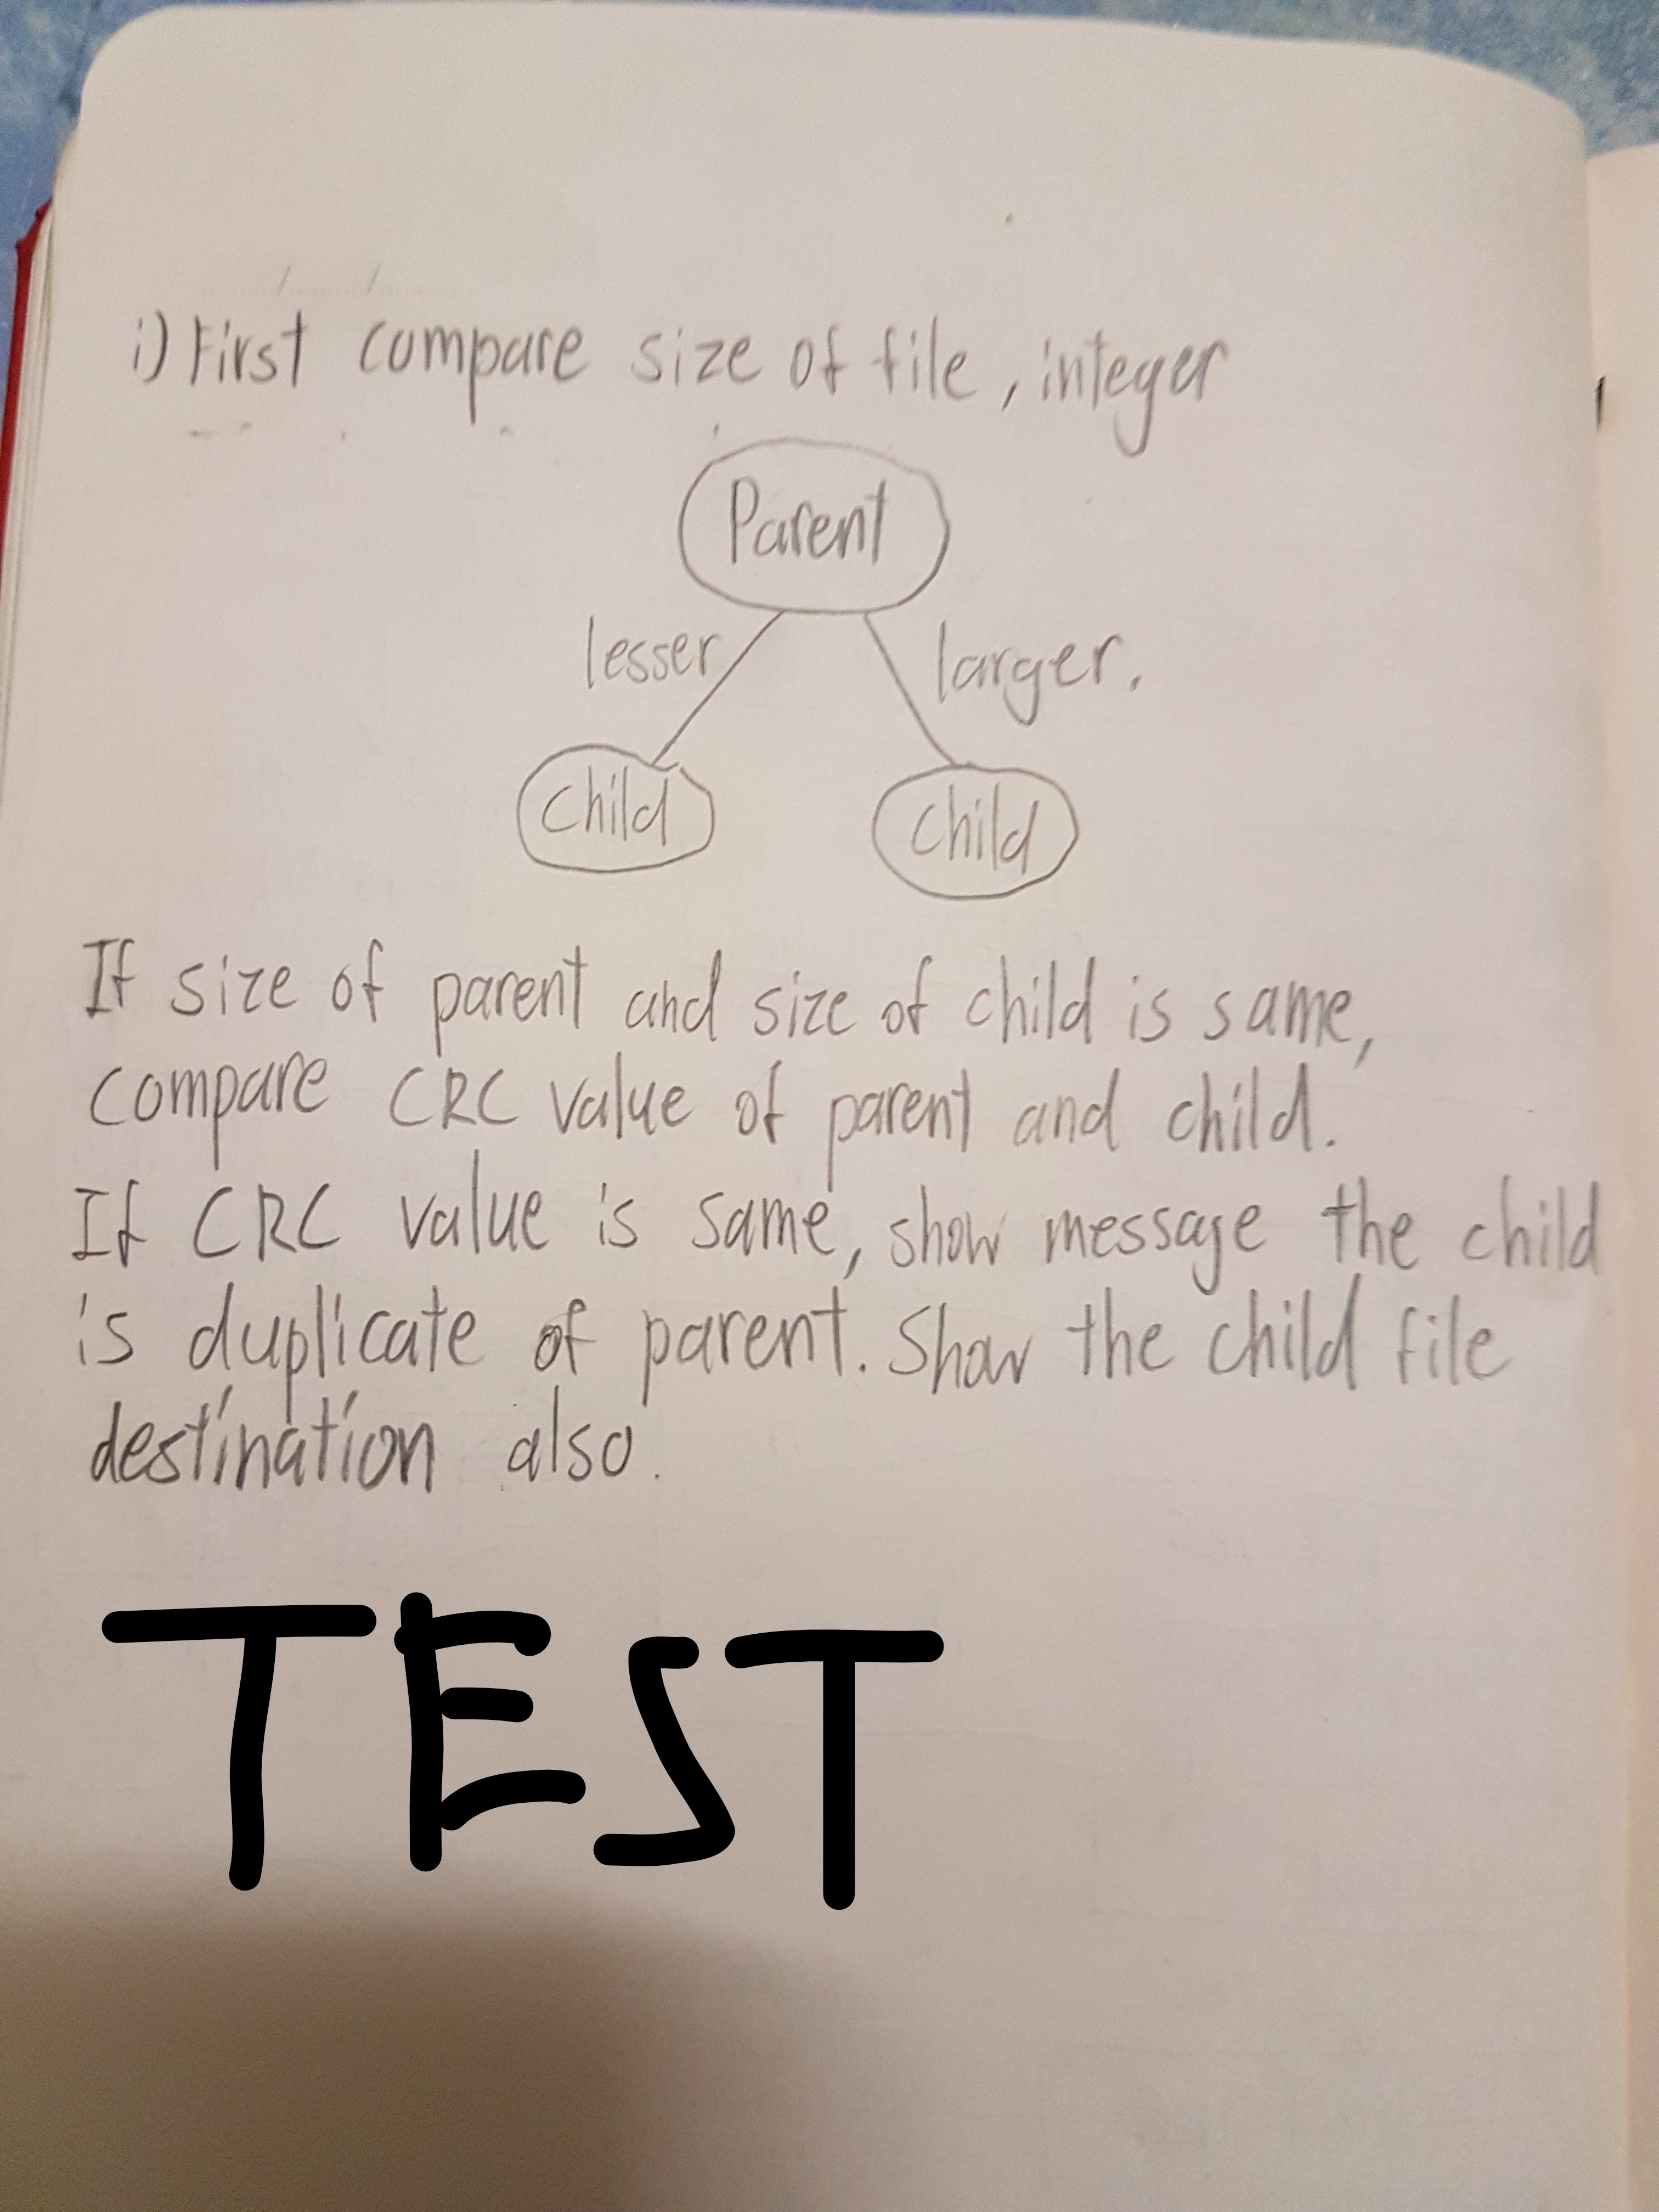 i) First compare size of file, integer
Parent
lesser larger.
Child Child
If size of parent and size of child is same,
compare CRC value of parent and child.
If CRC value is same, show message the child
is duplicate of parent. Show the child file
destination also.
TEST